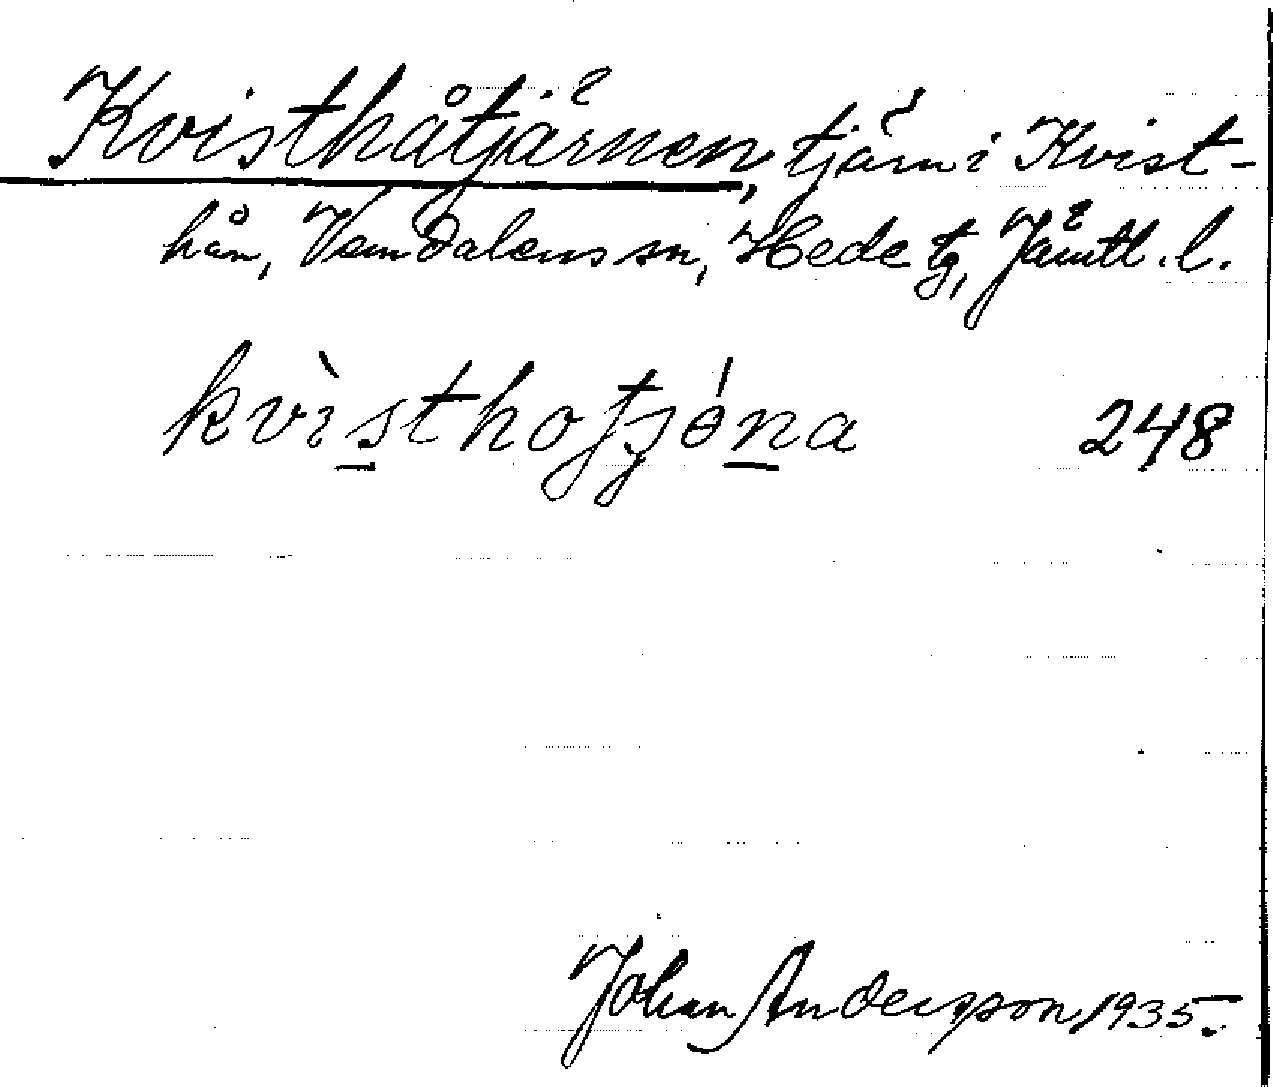 Kvisthåtjärnen, tjärn i Kvist-
hån, Vemdalens sn, Hede tg, Jämtl. l.
kvìsthotʃɵ́na 248
Johan Andersson 1935.